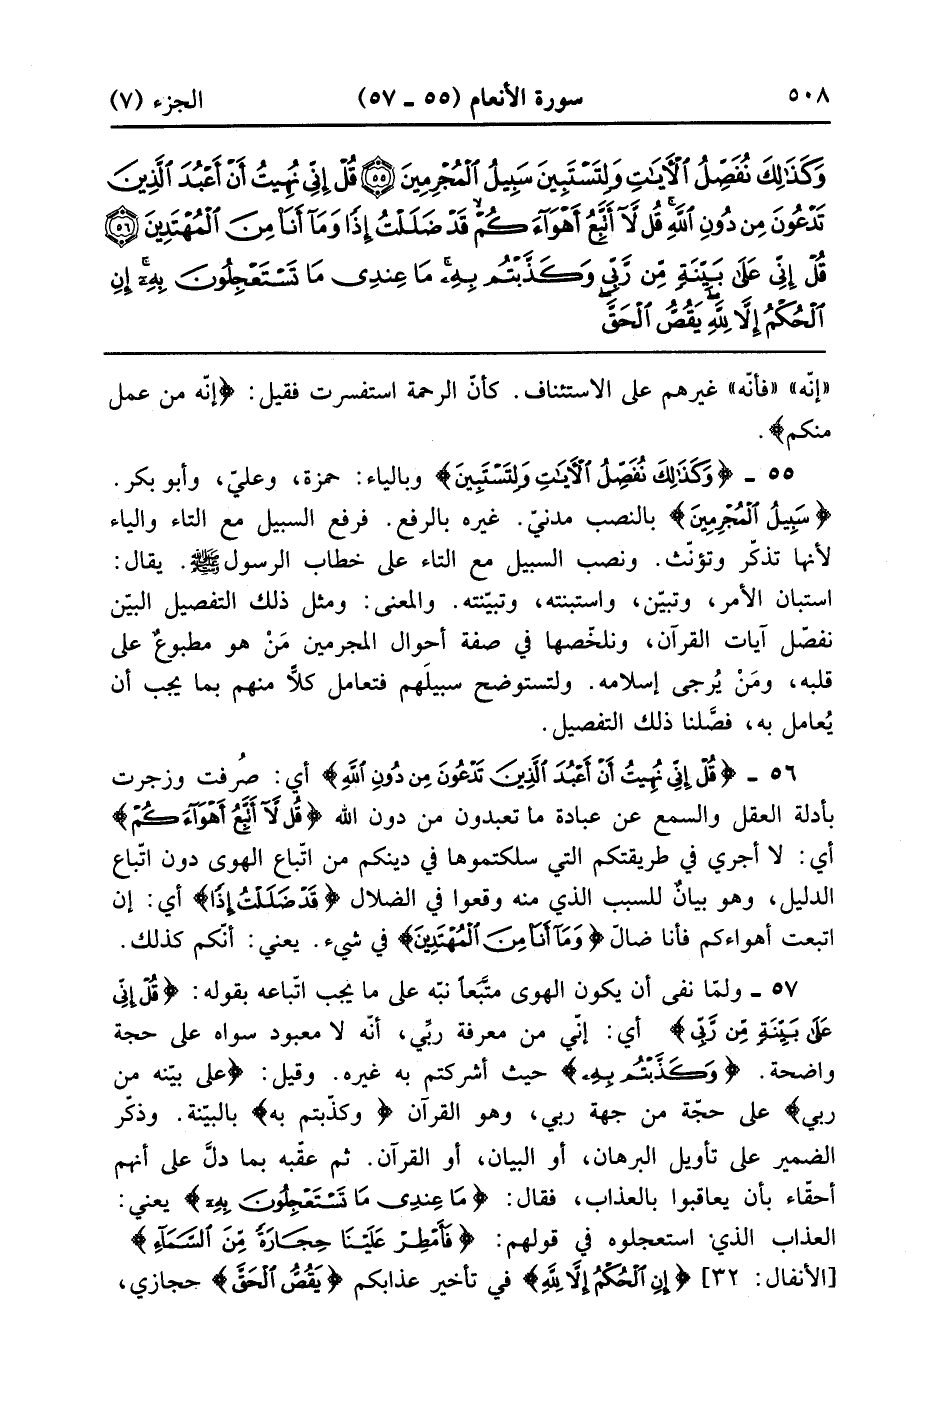 ٥٠٨ سورة الأنعام (٥٥ ـ ٥٧) الجزء (٧)
وَكَذَٰلِكَ نُفَصِّلُ ٱلْآيَٰتِ وَلِتَسْتَبِينَ سَبِيلُ ٱلْمُجْرِمِينَ ۝٥٥ قُلْ إِنِّى نُهِيتُ أَنْ أَعْبُدَ ٱلَّذِينَ
تَدْعُونَ مِن دُونِ ٱللَّهِ ۚ قُل لَّآ أَتَّبِعُ أَهْوَآءَكُمْ ۙ قَدْ ضَلَلْتُ إِذًا وَمَآ أَنَا۠ مِنَ ٱلْمُهْتَدِينَ ۝٥٦
قُلْ إِنِّى عَلَىٰ بَيِّنَةٍ مِّن رَّبِّى وَكَذَّبْتُم بِهِۦ ۚ مَا عِندِى مَا تَسْتَعْجِلُونَ بِهِۦٓ ۚ إِنِ
ٱلْحُكْمُ إِلَّا لِلَّهِ ۖ يَقُصُّ ٱلْحَقَّ ۖ
«إنّه» «فأنّه» غيرهم على الاستئناف. كأنّ الرحمة استفسرت فقيل: ﴿إنّه من عمل
منكم﴾.
٥٥ ـ ﴿وَكَذَٰلِكَ نُفَصِّلُ ٱلْآيَٰتِ وَلِتَسْتَبِينَ﴾ وبالياء: حمزة، وعليّ، وأبو بكر.
﴿سَبِيلُ ٱلْمُجْرِمِينَ﴾ بالنصب مدنيّ. غيره بالرفع. فرفع السبيل مع التاء والياء
لأنها تذكّر وتؤنّث. ونصب السبيل مع التاء على خطاب الرسول ﷺ. يقال:
استبان الأمر، وتبيّن، واستبنته، وتبيّنته. والمعنى: ومثل ذلك التفصيل البيّن
نفصّل آيات القرآن، ونلخّصها في صفة أحوال المجرمين مَنْ هو مطبوعٌ على
قلبه، ومَنْ يُرجى إسلامه. ولتستوضح سبيلَهم فتعامل كلاًّ منهم بما يجب أن
يُعامل به، فصَّلنا ذلك التفصيل.
٥٦ ـ ﴿قُلْ إِنِّى نُهِيتُ أَنْ أَعْبُدَ ٱلَّذِينَ تَدْعُونَ مِن دُونِ ٱللَّهِ﴾ أي: صُرفت وزجرت
بأدلة العقل والسمع عن عبادة ما تعبدون من دون الله ﴿قُل لَّآ أَتَّبِعُ أَهْوَآءَكُمْ﴾
أي: لا أجري في طريقتكم التي سلكتموها في دينكم من اتّباع الهوى دون اتّباع
الدليل، وهو بيانٌ للسبب الذي منه وقعوا في الضلال ﴿قَدْ ضَلَلْتُ إِذًا﴾ أي: إن
اتبعت أهواءكم فأنا ضالّ ﴿وَمَآ أَنَا۠ مِنَ ٱلْمُهْتَدِينَ﴾ في شيء. يعني: أنّكم كذلك.
٥٧ ـ ولمّا نفى أن يكون الهوى متَّبَعاً نبّه على ما يجب اتّباعه بقوله: ﴿قُلْ إِنِّى
عَلَىٰ بَيِّنَةٍ مِّن رَّبِّى﴾ أي: إنّي من معرفة ربِّي، أنّه لا معبود سواه على حجة
واضحة. ﴿وَكَذَّبْتُم بِهِۦ﴾ حيث أشركتم به غيره. وقيل: ﴿على بيّنه من
ربي﴾ على حجّة من جهة ربي، وهو القرآن ﴿وكذّبتم به﴾ بالبيّنة. وذكّر
الضمير على تأويل البرهان، أو البيان، أو القرآن. ثم عقّبه بما دلَّ على أنهم
أحقّاء بأن يعاقبوا بالعذاب، فقال: ﴿مَا عِندِى مَا تَسْتَعْجِلُونَ بِهِۦ﴾ يعني:
العذاب الذي استعجلوه في قولهم: ﴿فَأَمْطِرْ عَلَيْنَا حِجَارَةً مِّنَ ٱلسَّمَآءِ﴾
[الأنفال: ٣٢] ﴿إِنِ ٱلْحُكْمُ إِلَّا لِلَّهِ﴾ في تأخير عذابكم ﴿يَقُصُّ ٱلْحَقَّ﴾ حجازي،